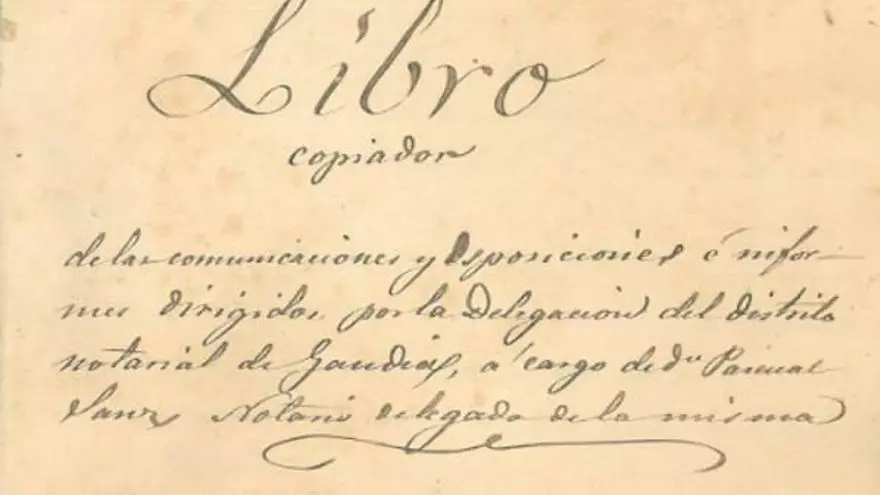 Libro
copiador
de las comunicaciones y Esposiciones é infor-
mes dirigidos por la Delegación del distrito
notarial de Gandía, á cargo de Dn Pascual
Sanz Notario delegado de la misma